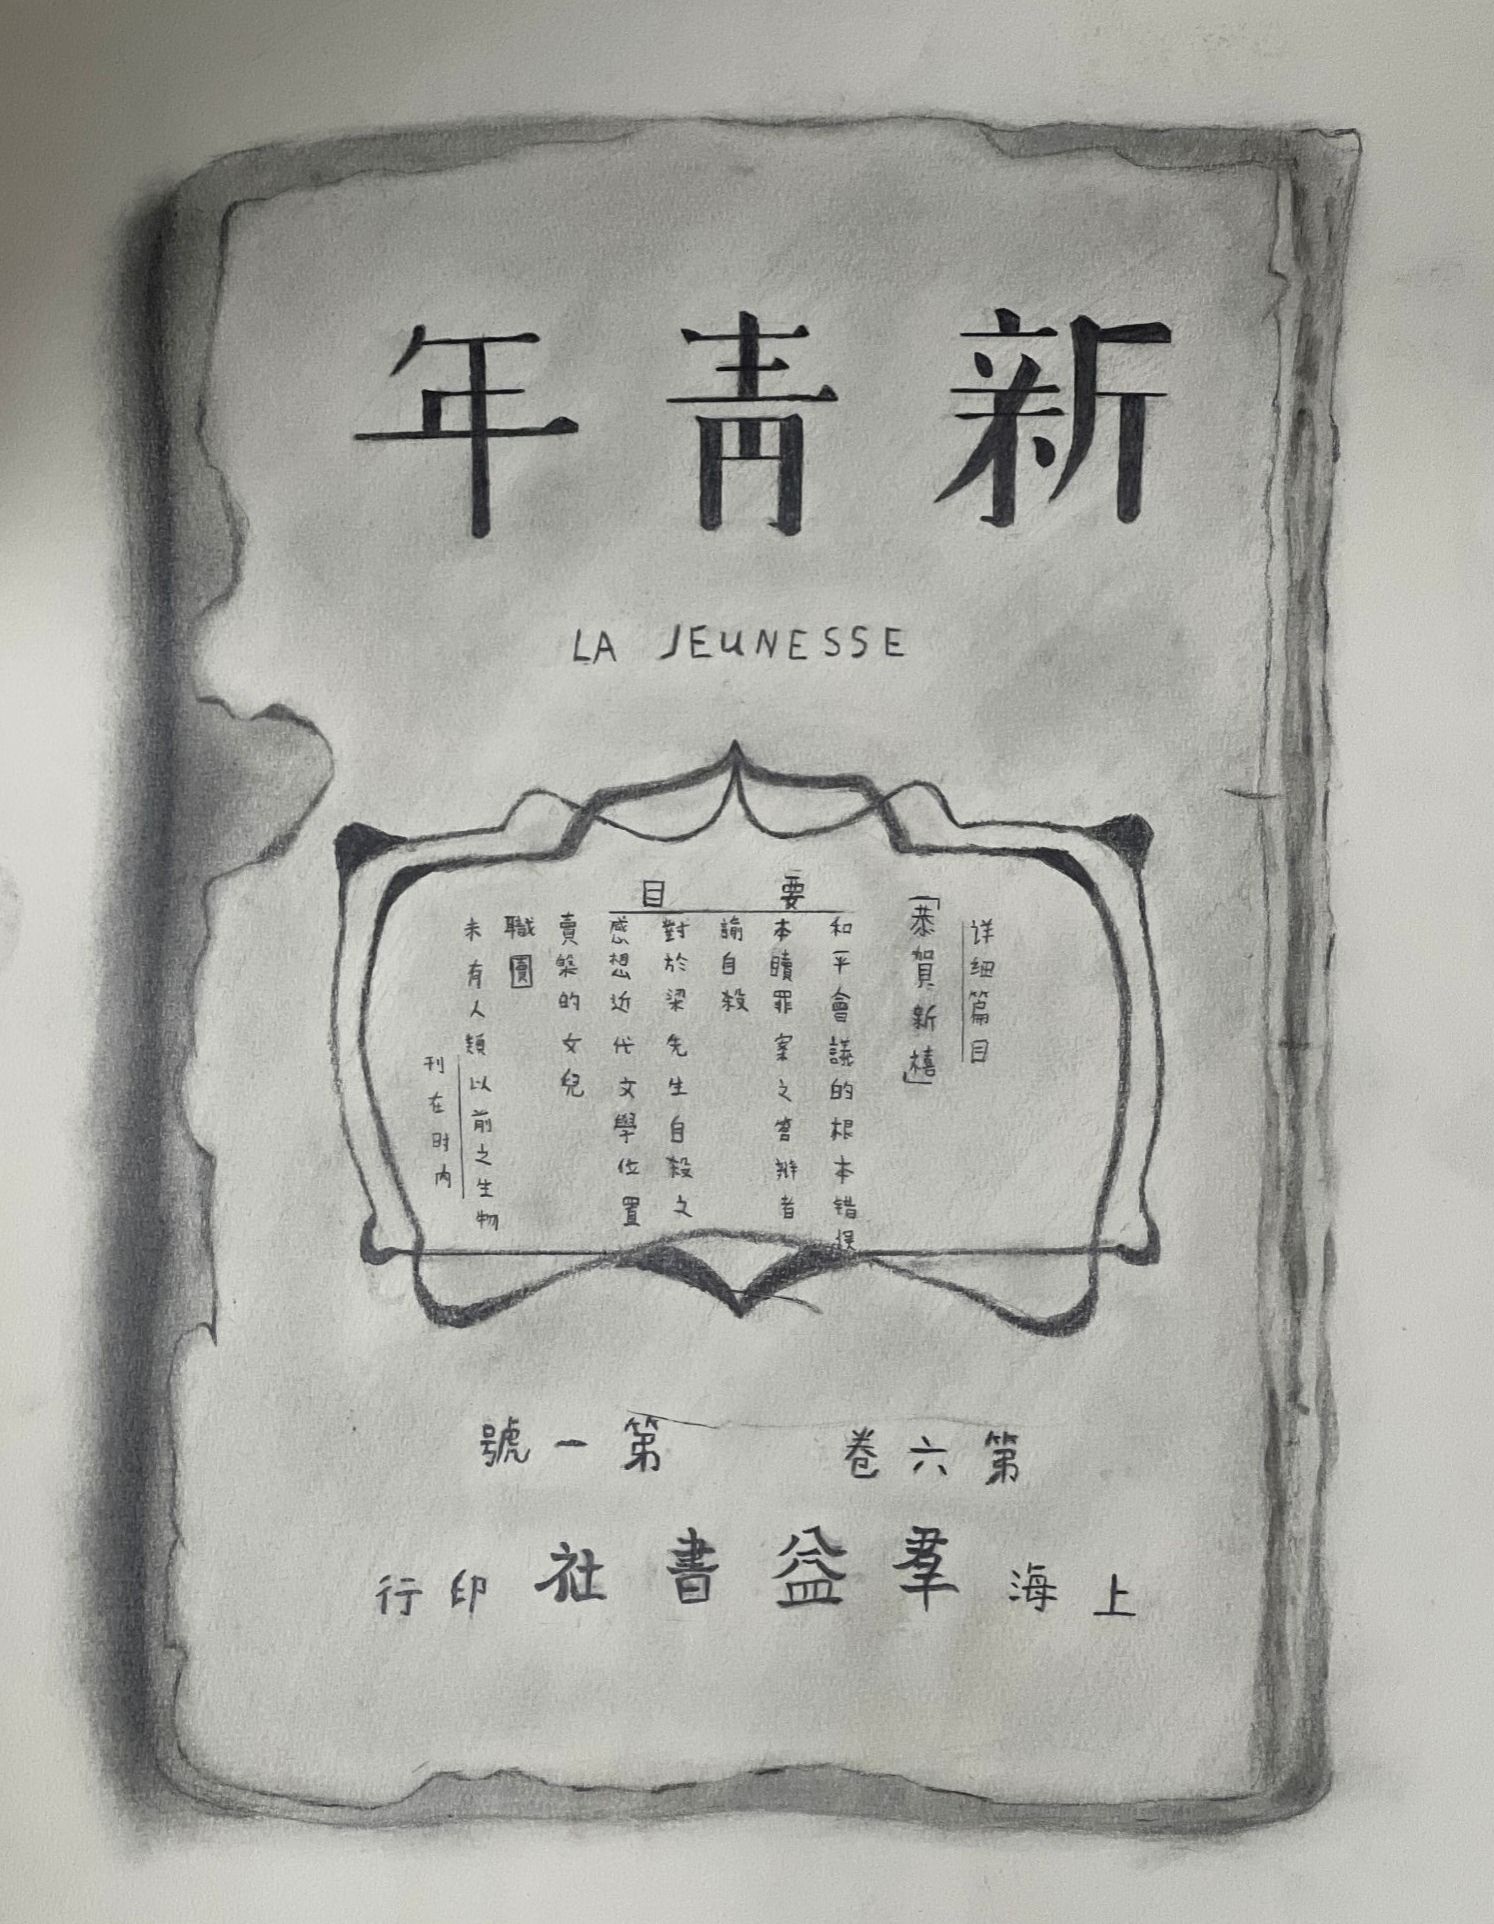 新青年
LA JEUNESSE
要目
详细篇目
「恭賀新禧」
和平會議的根本错误
本贖罪案之答辯者
諭自殺
對於梁先生自殺之
感想近代文學位置
賣的女兒
職園
未有人類以前之生物
刊在时内
第六卷 第一號
上海羣益書社印行